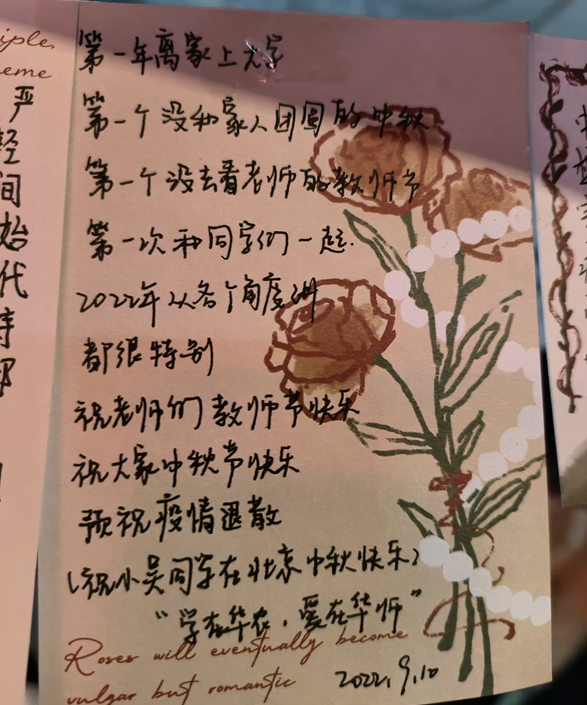 iple,
eme
严
轻
间
始
代
诗
第一年离家上大学
第一个没和家人团圆的中秋
第一个没去看老师的教师节
第一次和同学们一起.
2022年从各个角度讲
都很特别
祝老师们教师节快乐
祝大家中秋节快乐
预祝疫情退散
(祝小吴同学在北京中秋快乐)
“学在华农·爱在华师”
Roses will eventually become
vulgar but romantic
2022.9.10